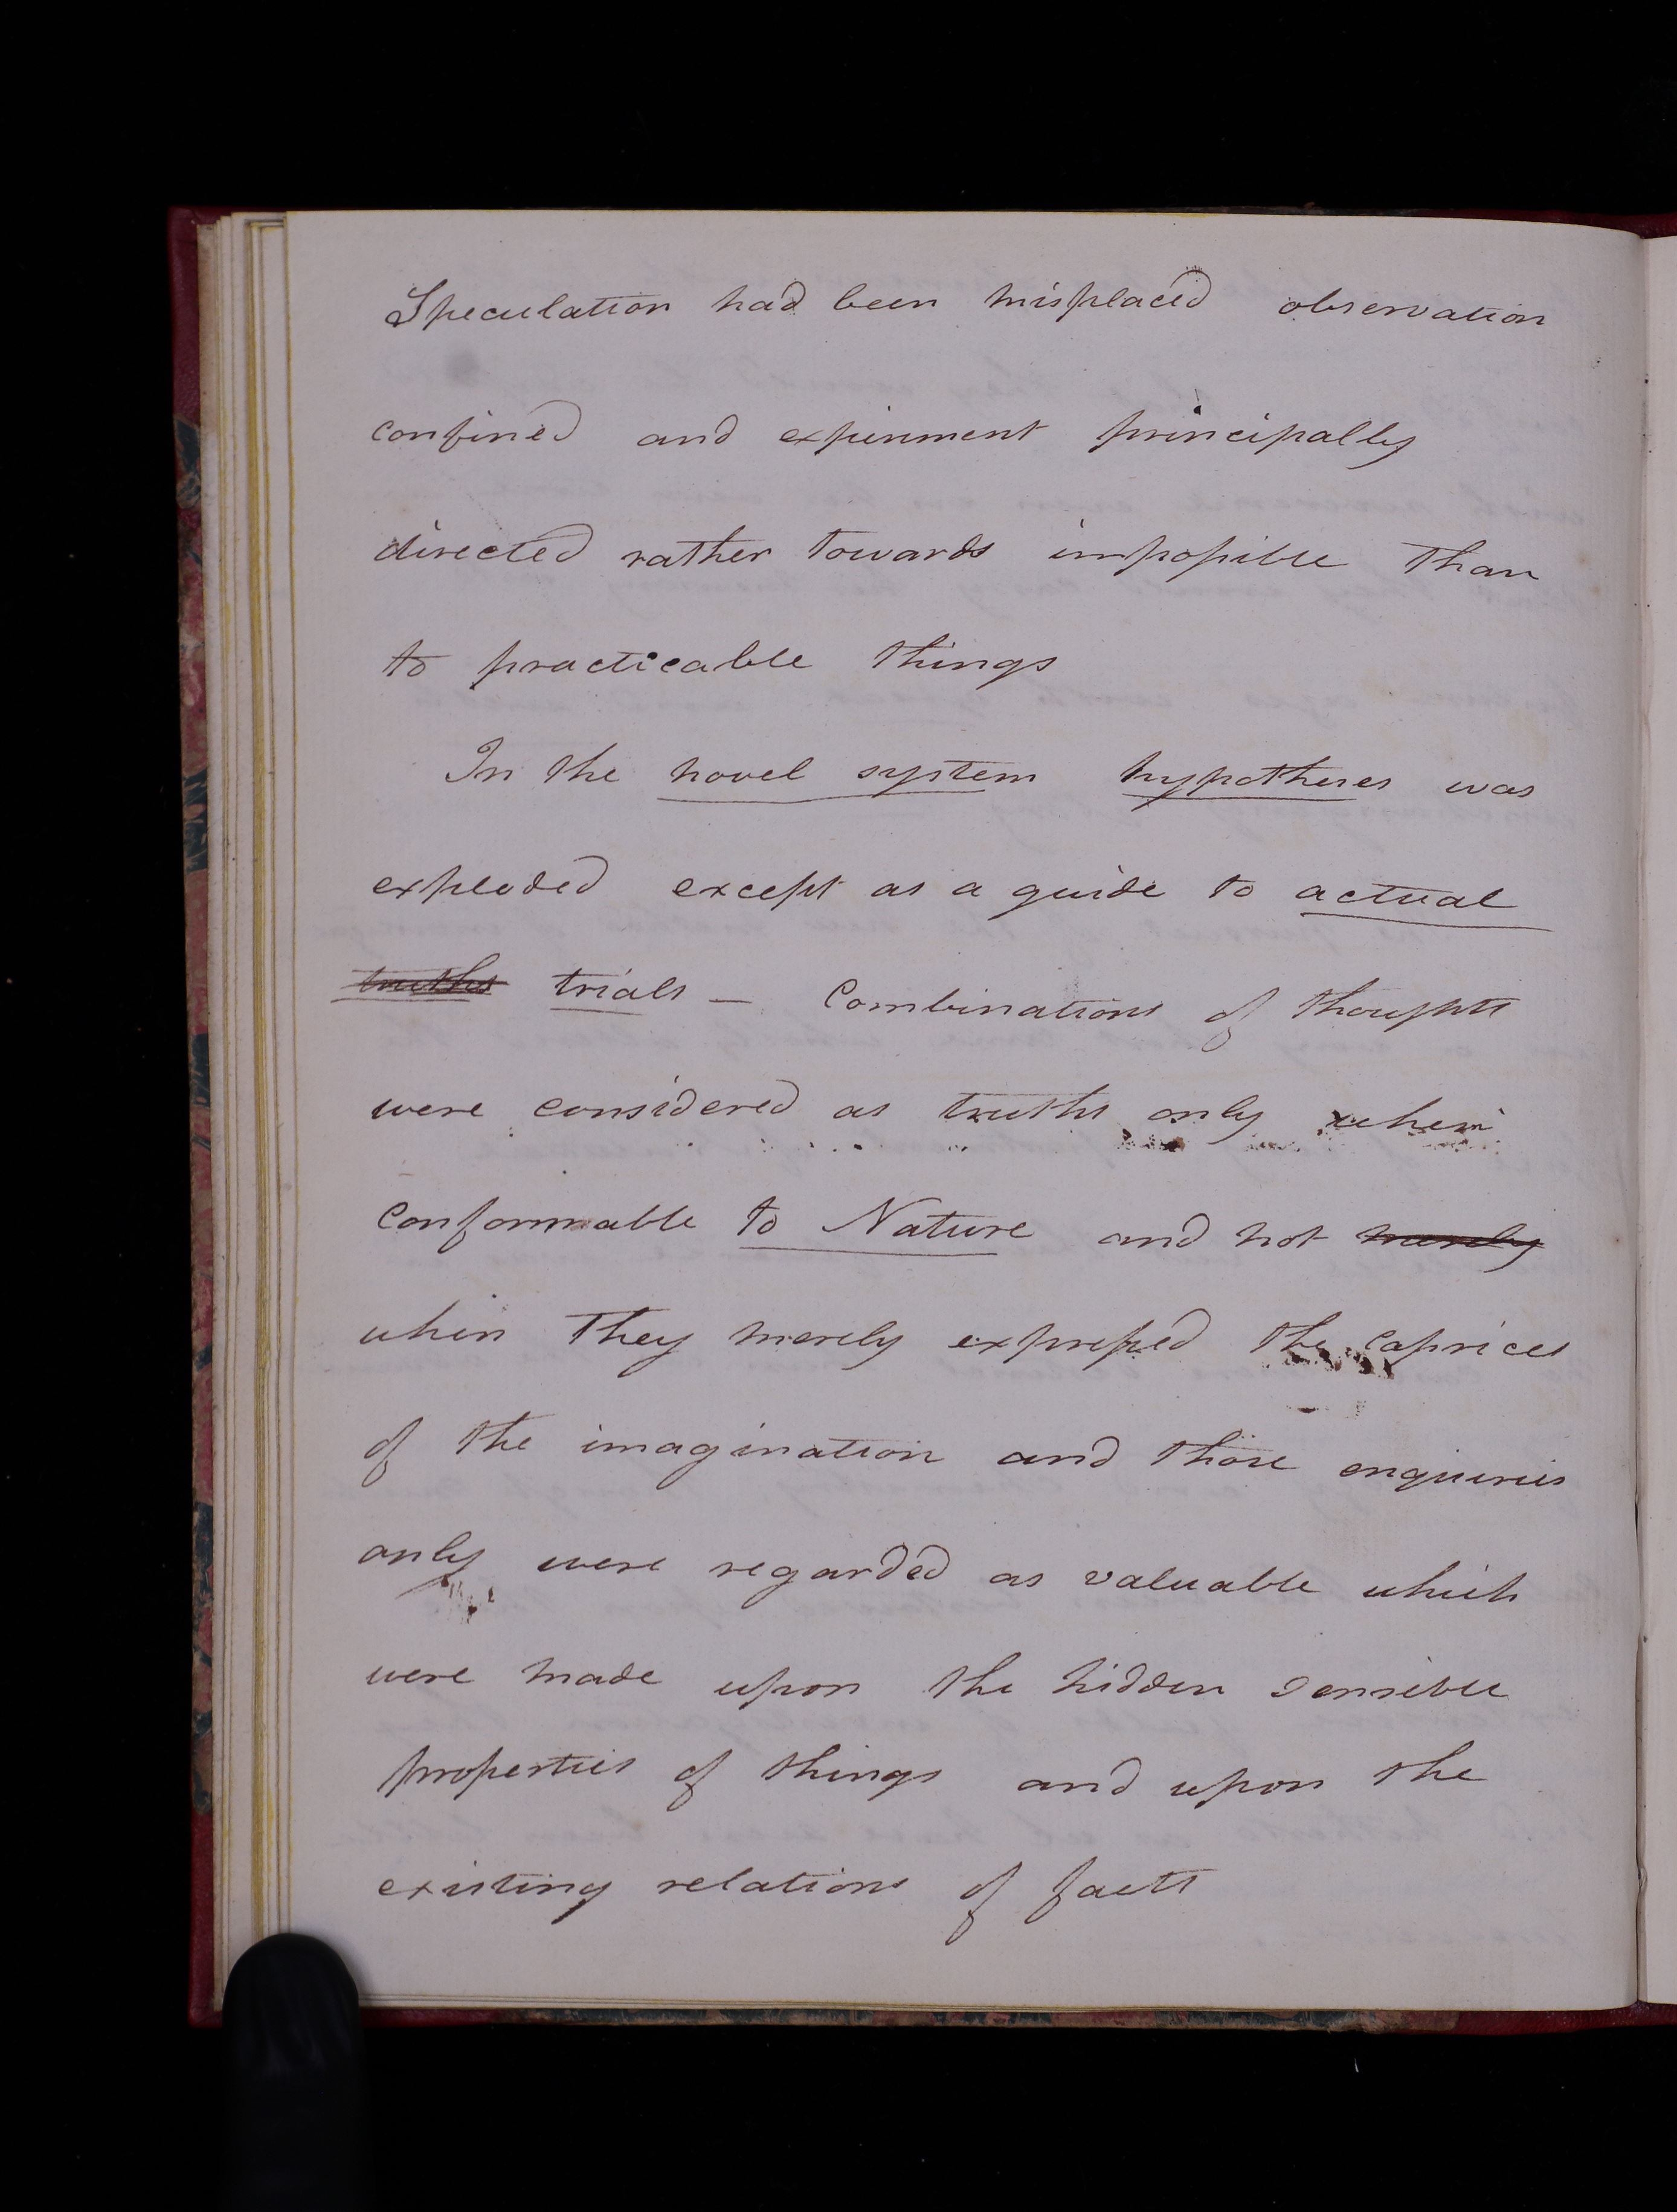 Speculation had been misplaced observation
confined and experiment principally
directed rather towards impossible than
to practicable things
In the novel system hypotheses was
exploded except as a guide to actual
truths trials — Combinations of thoughts
were considered as truths only when
conformable to Nature and not merely
when they merely expressed the caprices
of the imagination and those enquiries
only were regarded as valuable which
were made upon the hidden sensible
properties of things and upon the
existing relations of facts